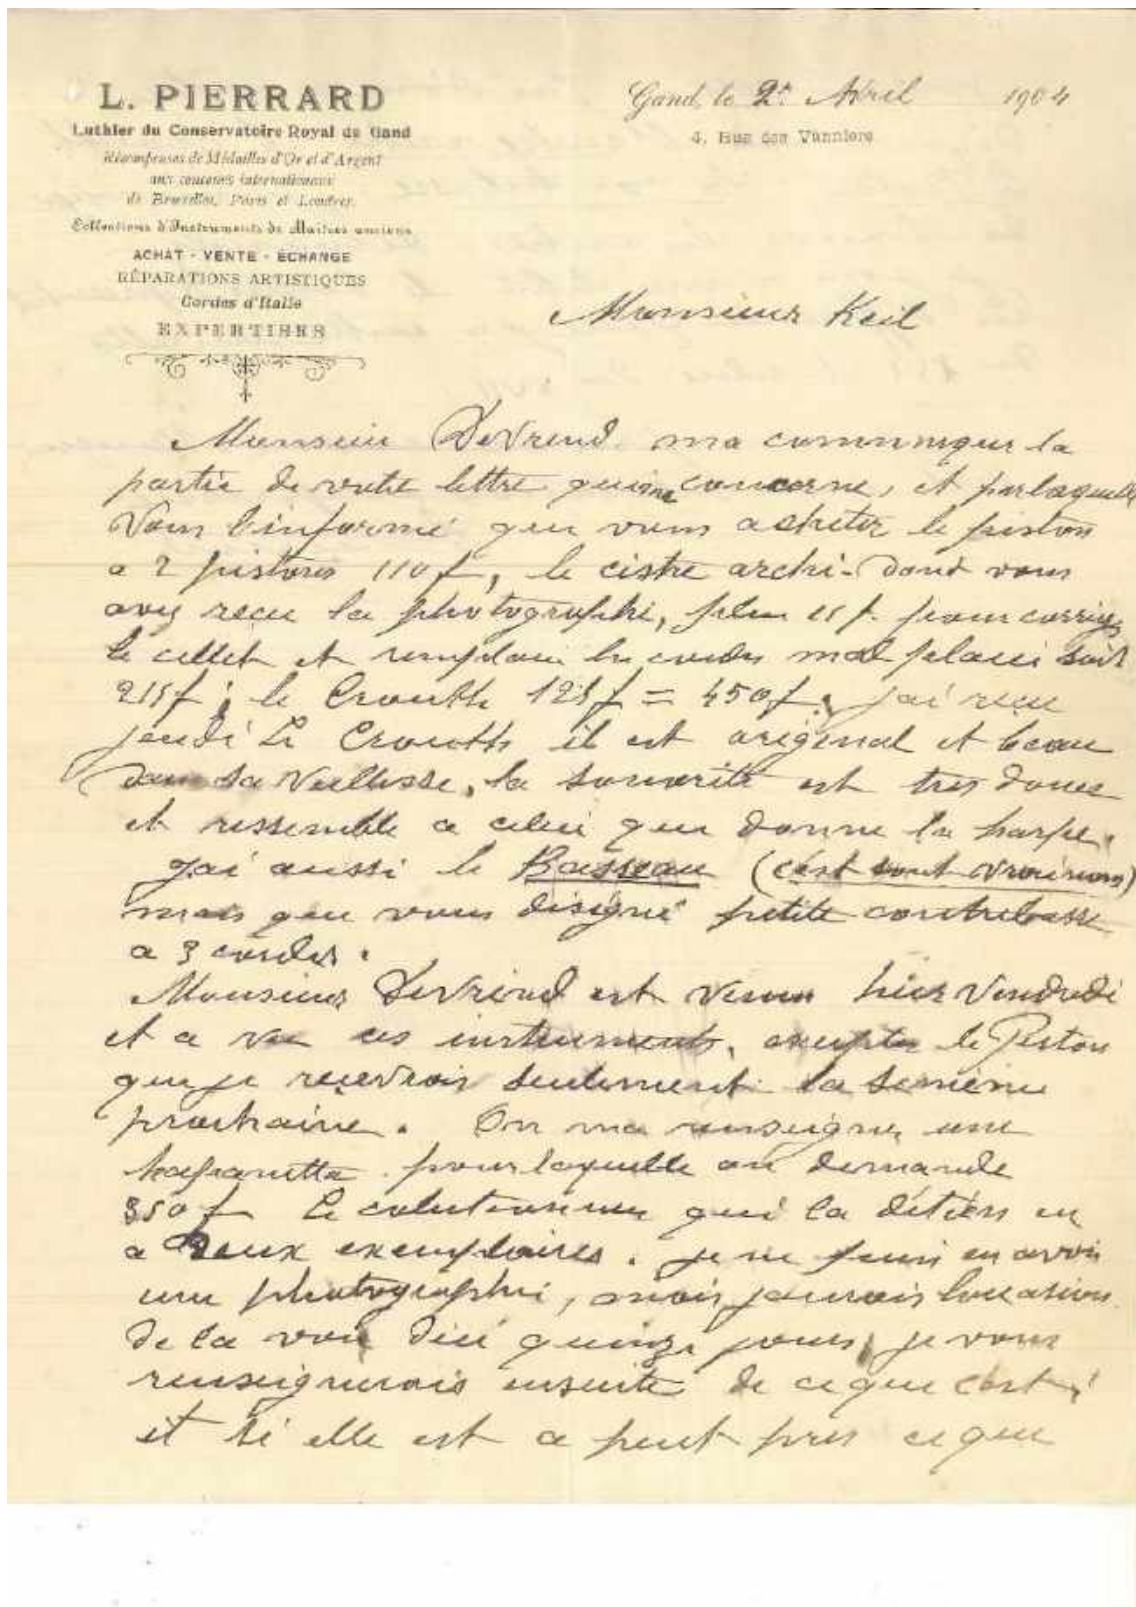 L. PIERRARD
Luthier du Conservatoire Royal de Gand
Récompenses de Médailles d'Or et d'Argent
aux concours internationaux
de Bruxelles, Paris et Londres.
Collections d'Instruments de Maîtres anciens
ACHAT - VENTE - ÉCHANGE
RÉPARATIONS ARTISTIQUES
Cordes d'Italie
EXPERTISES
Gand, le 2 Avril 1904
4, Rue des Vanniers
Monsieur Keil
Monsieur DeVriend ma communiquer la
partie de votre lettre qui me concerne, et par laquelle
Vous l'informé que vous acheter le piston
a 2 pistons 110 f, le cistre archi- dont vous
avez reçu la photographie, plus 15 f. pour corriger
le collet et remplacer les cordes mal placé soit
215 f; le Crouth 125 f = 450 f. jai reçu
jeudi Le Crouth il est original et beau
dans sa Viellesse, la sonorité est tres douce
et ressemble a celui que donne la harpe.
jai aussi le Basseau (c'est sont vrai nom)
mais que vous désigné petite contrebasse
a 3 cordes.
Monsieur DeVriend est venu hier Vendredi
et a vu ces instruments, excepter le Piston
que je reçevrais seulement la semene
prochaine. On ma renseigner une
pour laquelle on demande
350 f Le colectionneur qui la détien en
a Deux exemplaires. je ne puis en avoir
une photographie, mais jaurais loccasion
de la voir dici quinze jours, je vous
renseignerais ensuite de ce que c'est,
et si elle est a peut pres ce que